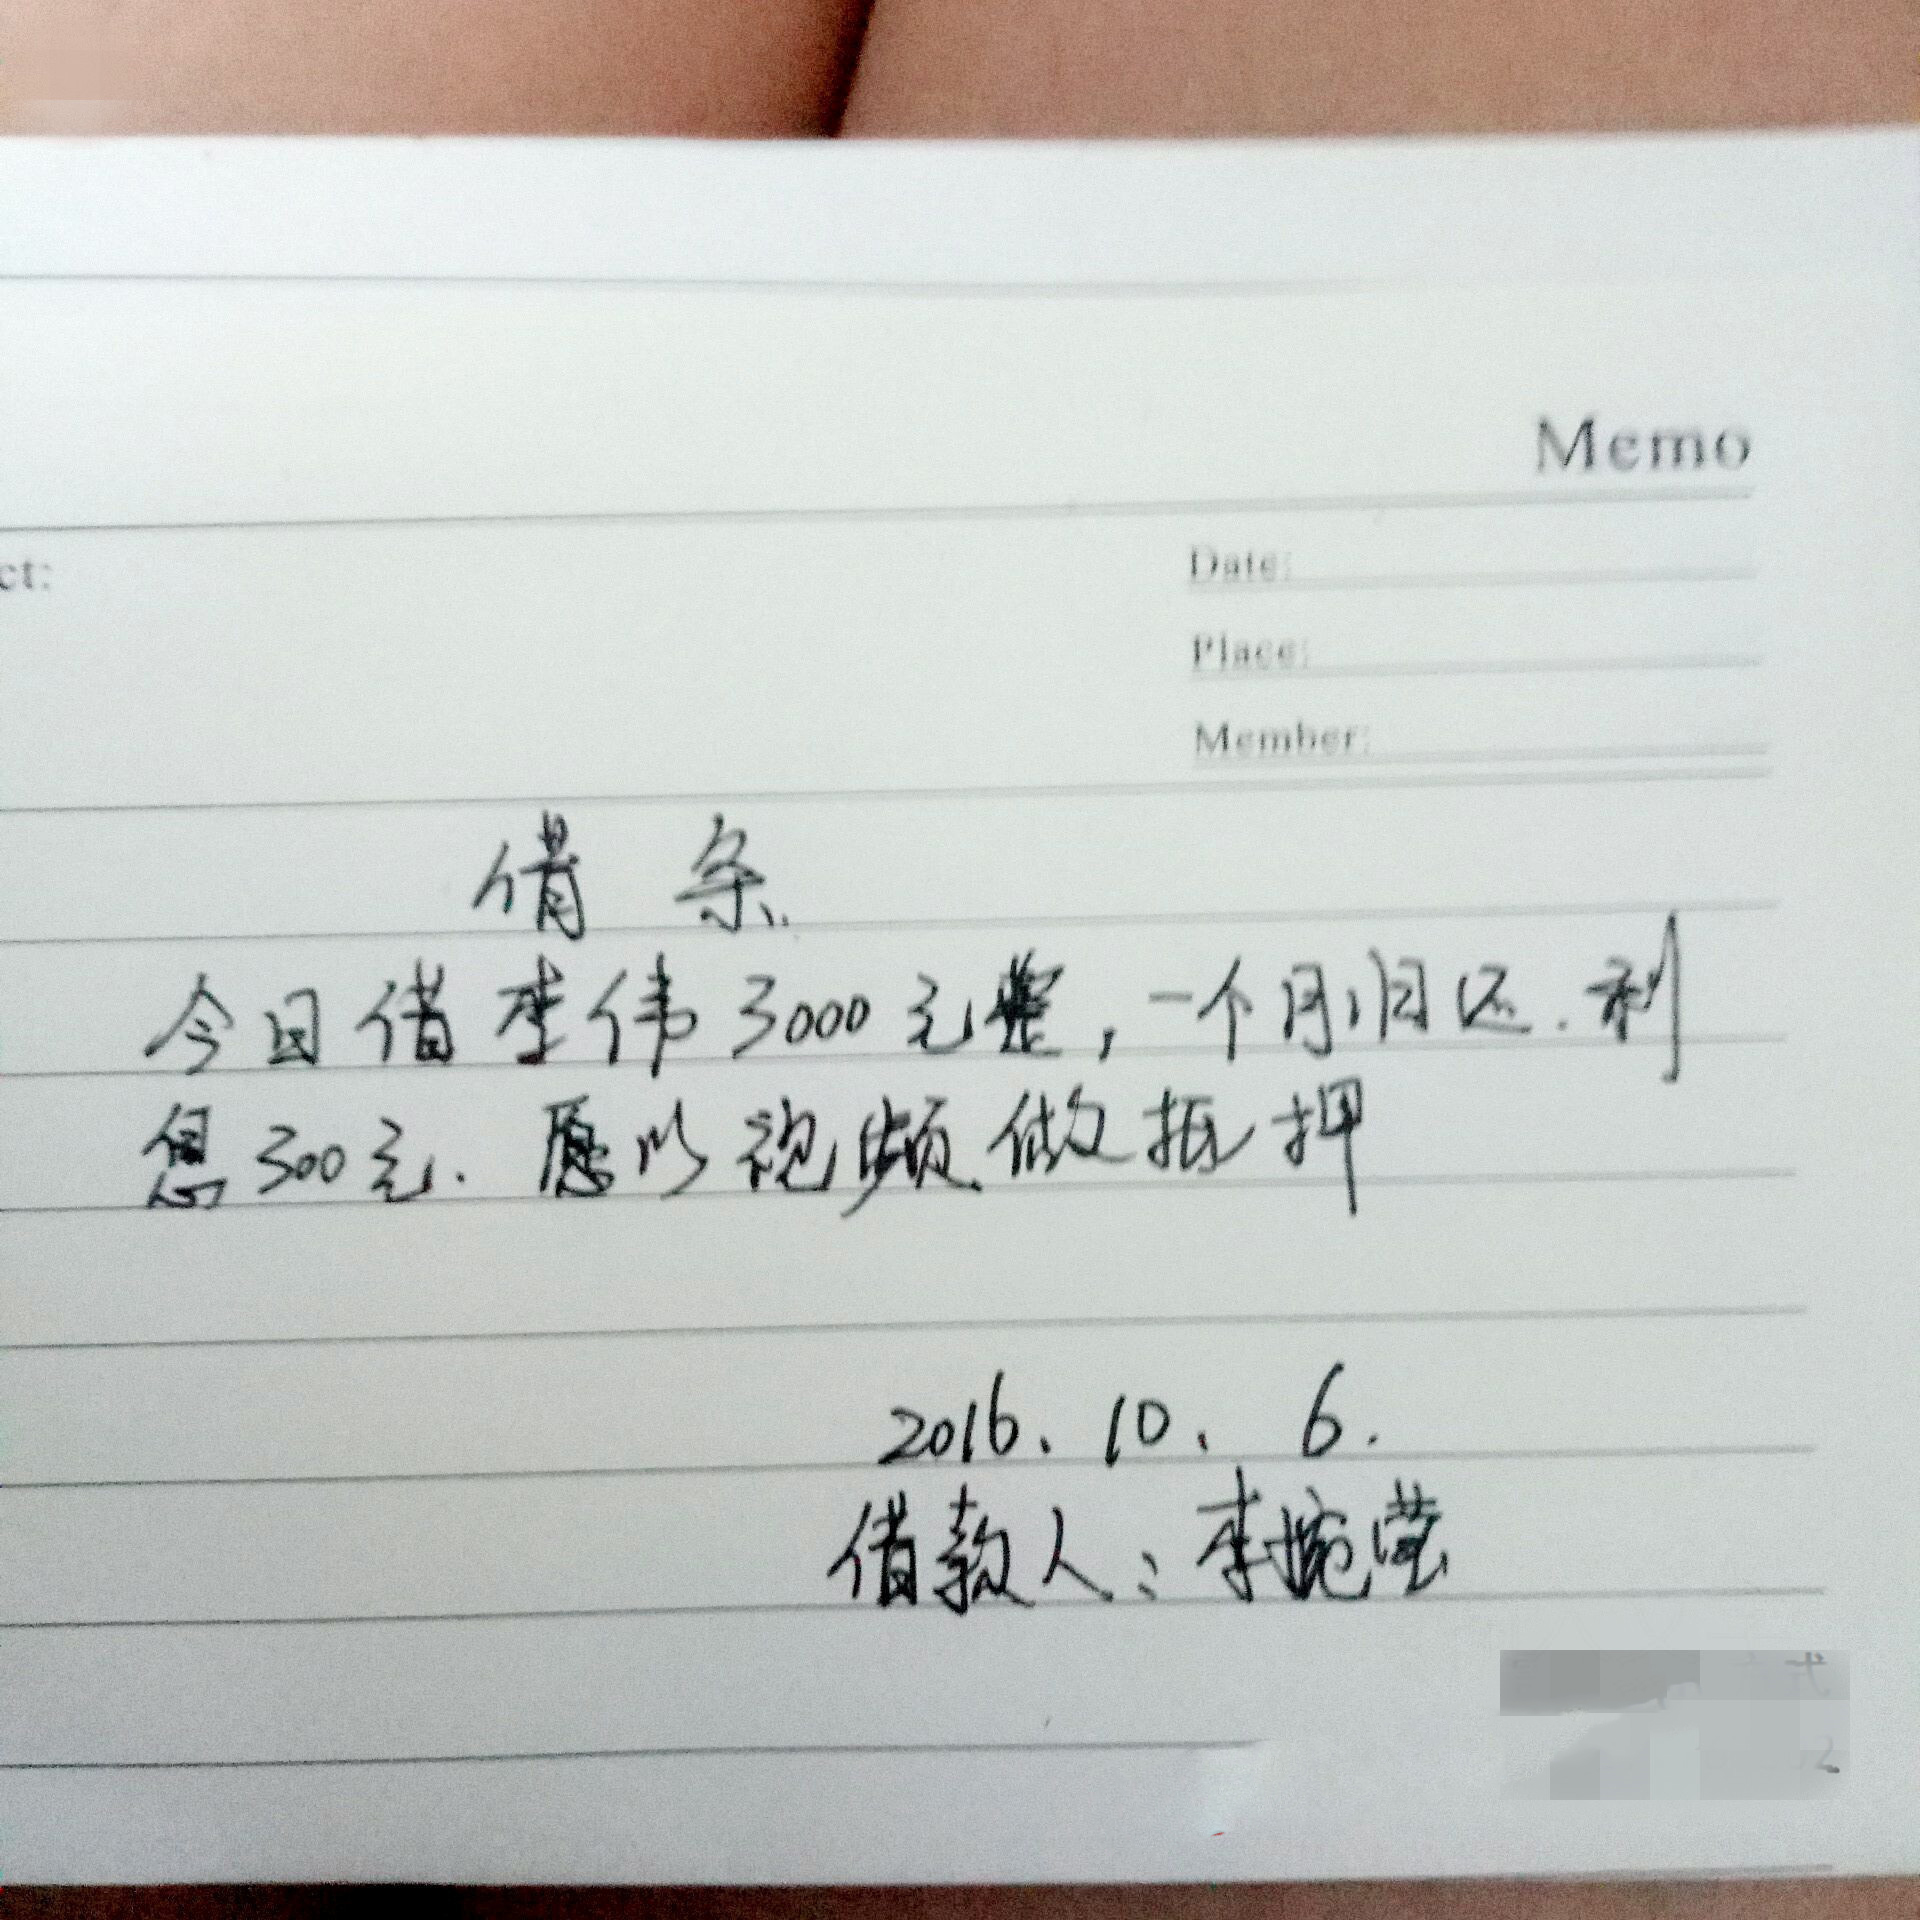 Memo
ct:
Date:
Place:
Member:
借条
今日借李伟3000元整，一个月归还.利
息300元.愿以视频做抵押
2016、10、6.
借款人：李婉莹